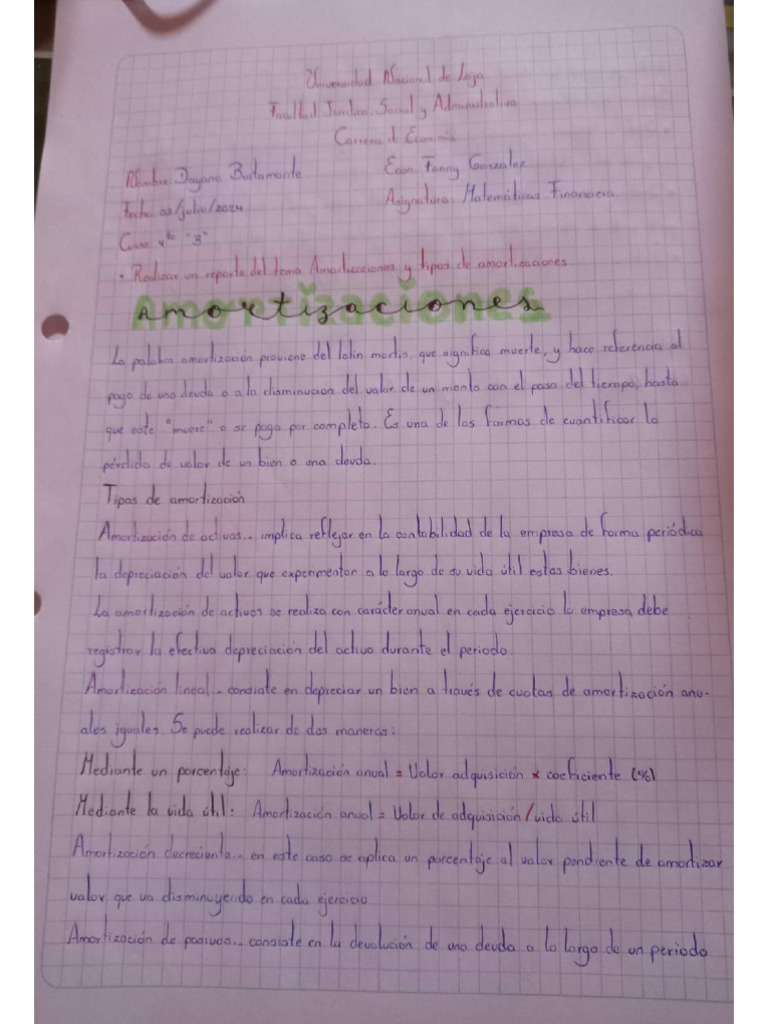 Universidad Nacional de Loja
Facultad Jurídica, Social y Administrativa
Carrera d Economía
Nombre: Dayana Bustamante Econ. Fanny Gonzalez
Fecha: 03/julio/2024 Asignatura: Matemáticas Financiera
Curso: 4to "B"
• Realizar un reporte del tema Amortizaciones y tipos de amortizaciones.
Amortizaciones
La palabra amortización proviene del latín mortis, que significa muerte, y hace referencia al
pago de una deuda o a la disminucion del valor de un monto con el paso del tiempo, hasta
que este "muere" o se paga por completo. Es una de las formas de cuantificar la
pérdida de valor de un bien o una deuda.
Tipos de amortización
Amortización de activos.- implica reflejar en la contabilidad de la empresa de forma periódica
la depreciación del valor que experimentan a lo largo de su vida útil estos bienes.
La amortización de activos se realiza con carácter anual en cada ejercicio la empresa debe
registrar la efectiva depreciación del activo durante el periodo.
Amortización lineal.- consiste en depreciar un bien a través de cuotas de amortización anu-
ales iguales. Se puede realizar de dos maneras:
Mediante un porcentaje: Amortización anual = Valor adquisición × coeficiente (%)
Mediante la vida útil: Amortización anual = Valor de adquisición/vida útil
Amortización decreciente.- en este caso se aplica un porcentaje al valor pendiente de amortizar
valor que va disminuyendo en cada ejercicio
Amortización de pasivos.- consiste en la devolución de una deuda a lo largo de un periodo